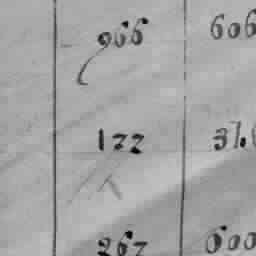 966 606
122 37.
267 600